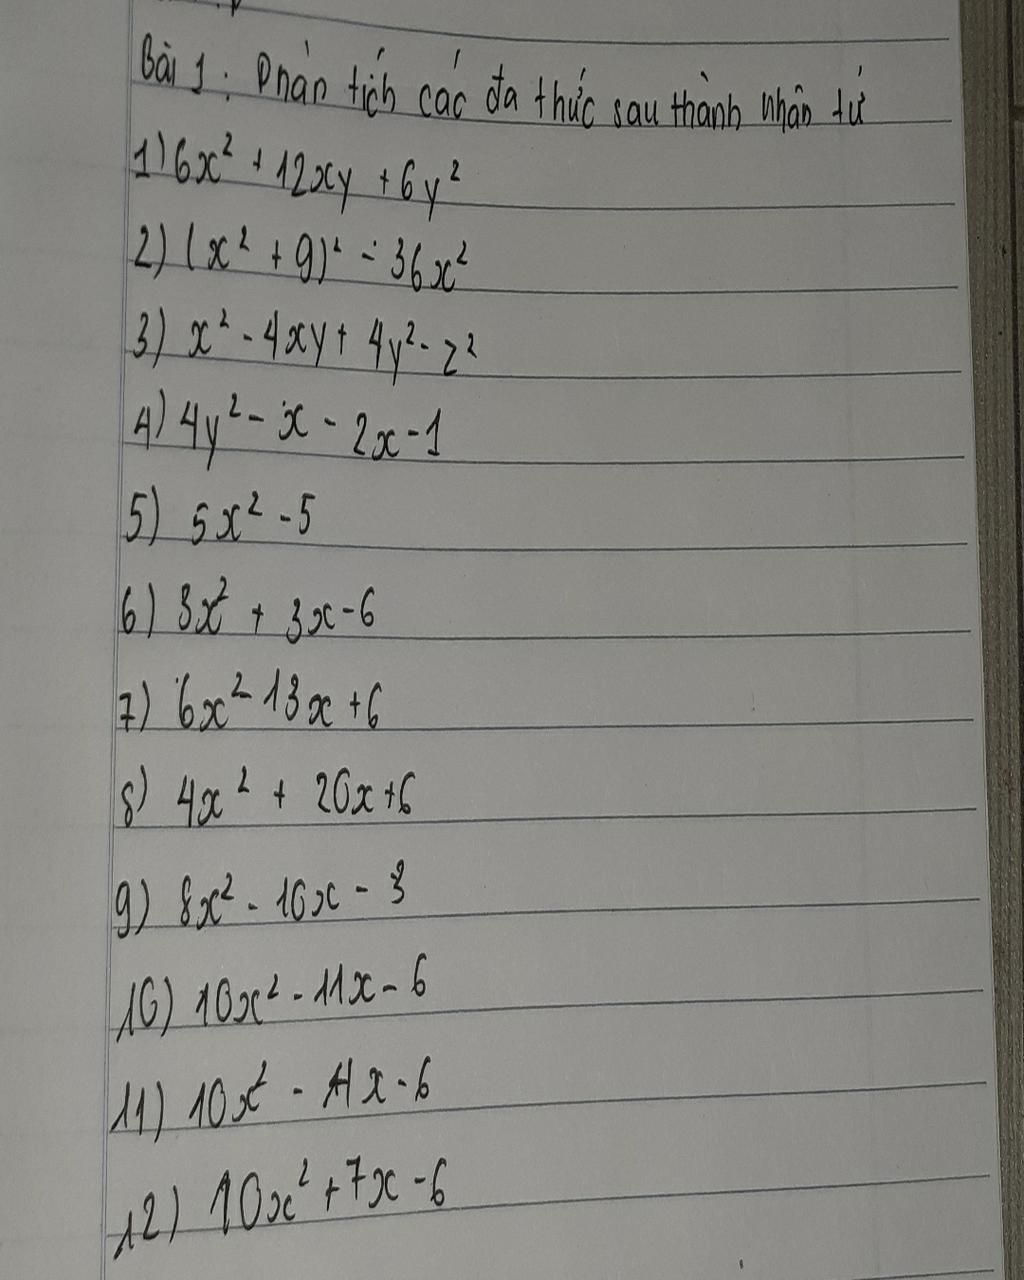 Bài 1: Phân tích các đa thức sau thành nhân tử
1) 6x² + 12xy + 6y²
2) (x² + 9)² - 36x²
3) x² - 4xy + 4y² - z²
4) 4y² - x - 2x - 1
5) 5x² - 5
6) 3x² + 3x - 6
7) 6x² - 13x + 6
8) 4x² + 20x + 6
9) 8x² - 10x - 3
10) 10x² - 11x - 6
11) 10x² - 4x - 6
12) 10x² + 7x - 6